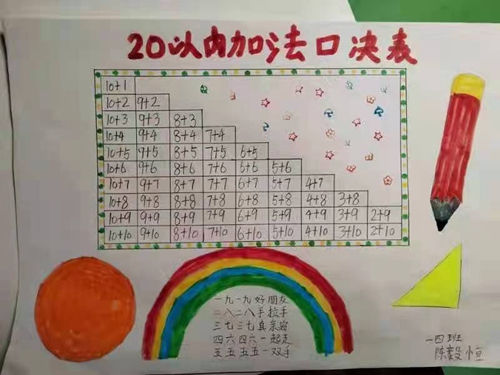 20以内加法口决表
10+1
10+2 9+2
10+3 9+3 8+3
10+4 9+4 8+4 7+4
10+5 9+5 8+5 7+5 6+5
10+6 9+6 8+6 7+6 6+6 5+6
10+7 9+7 8+7 7+7 6+7 5+7 4+7
10+8 9+8 8+8 7+8 6+8 5+8 4+8 3+8
10+9 9+9 8+9 7+9 6+9 5+9 4+9 3+9 2+9
10+10 9+10 8+10 7+10 6+10 5+10 4+10 3+10 2+10
一九一九好朋友
二八二八手拉手
三七三七真亲密
四六四六一起走
五五五五一双手
一四班
陈毅恒